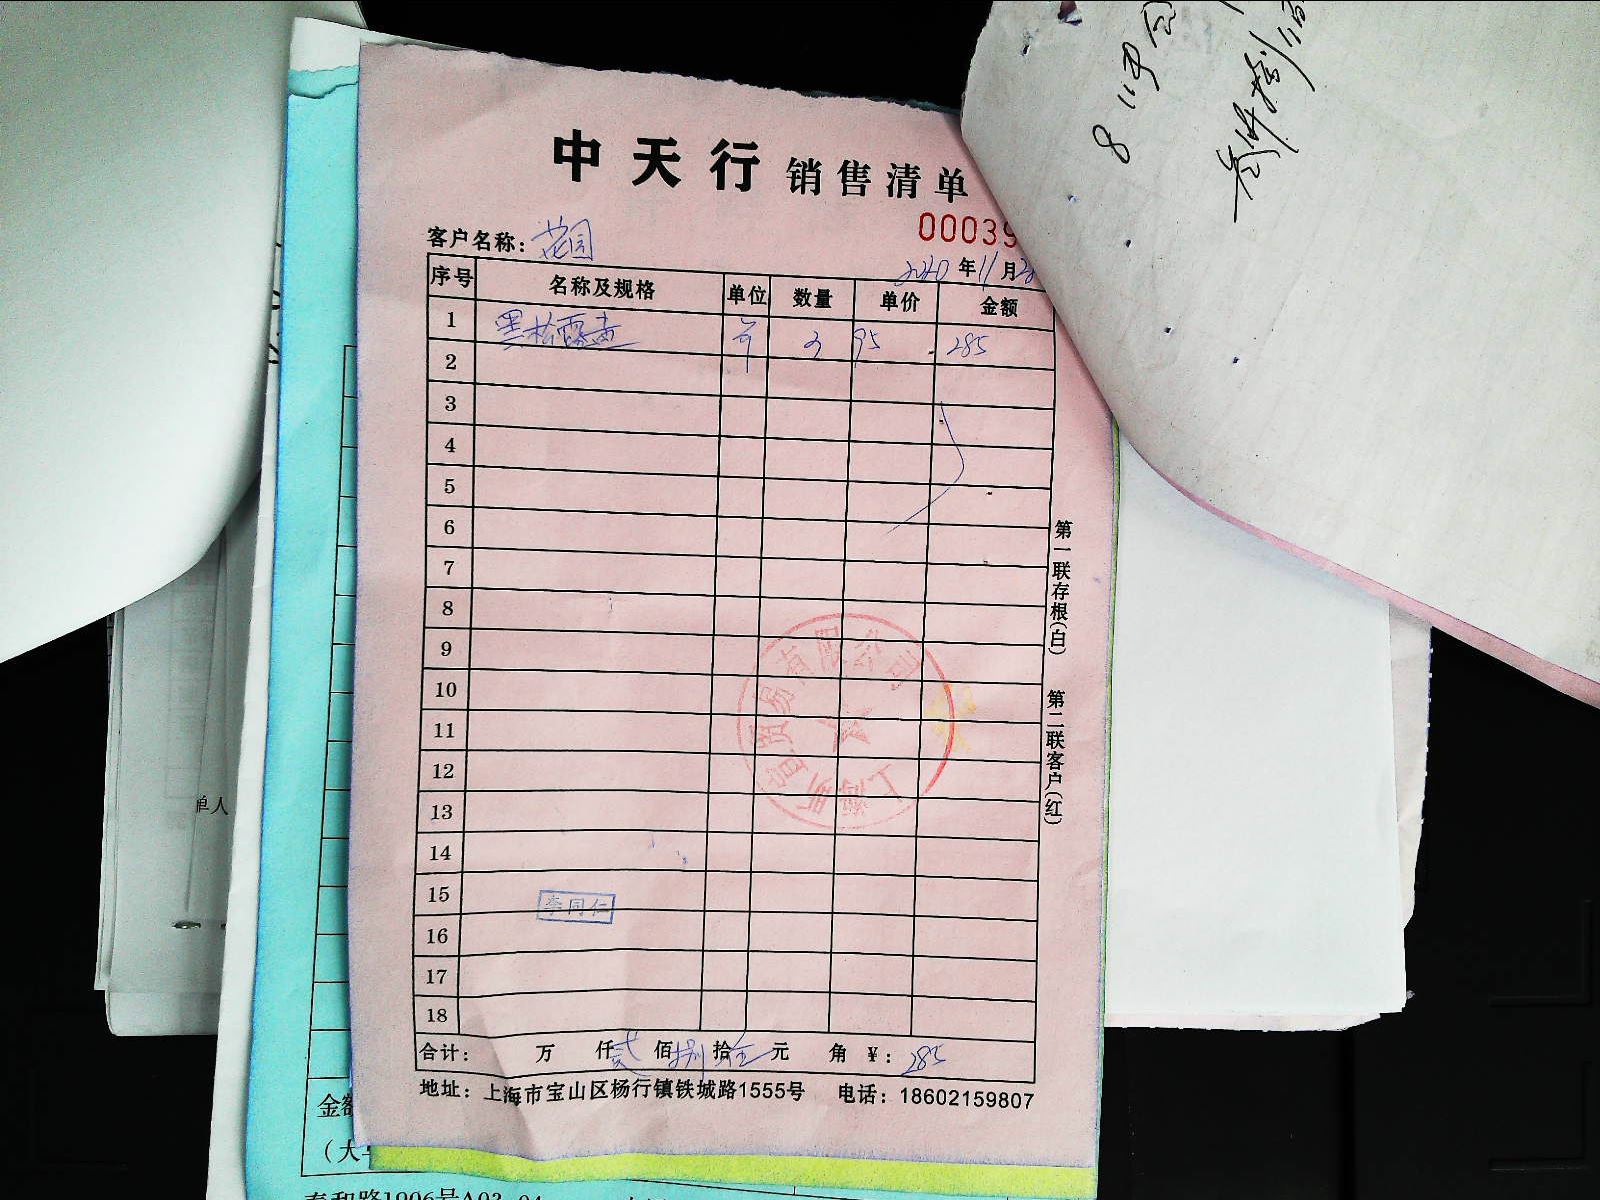 中天行 销售清单
00039
客户名称: 花园
2020 年 11 月 2
序号 名称及规格 单位 数量 单价 金额
1 黑松露 3 95 285
2
3
4
5
6
7
8
9
10
11
12
13
14
15
16
17
18
李同仁
上海 贸易有限公司
合计: 万 仟 贰 佰 捌 拾 伍 元 角 ¥: 285
地址: 上海市宝山区杨行镇铁城路1555号 电话: 18602159807
第一联存根(白)
第二联客户(红)
单人
金额
(大
泰和路1906号A03-04
8